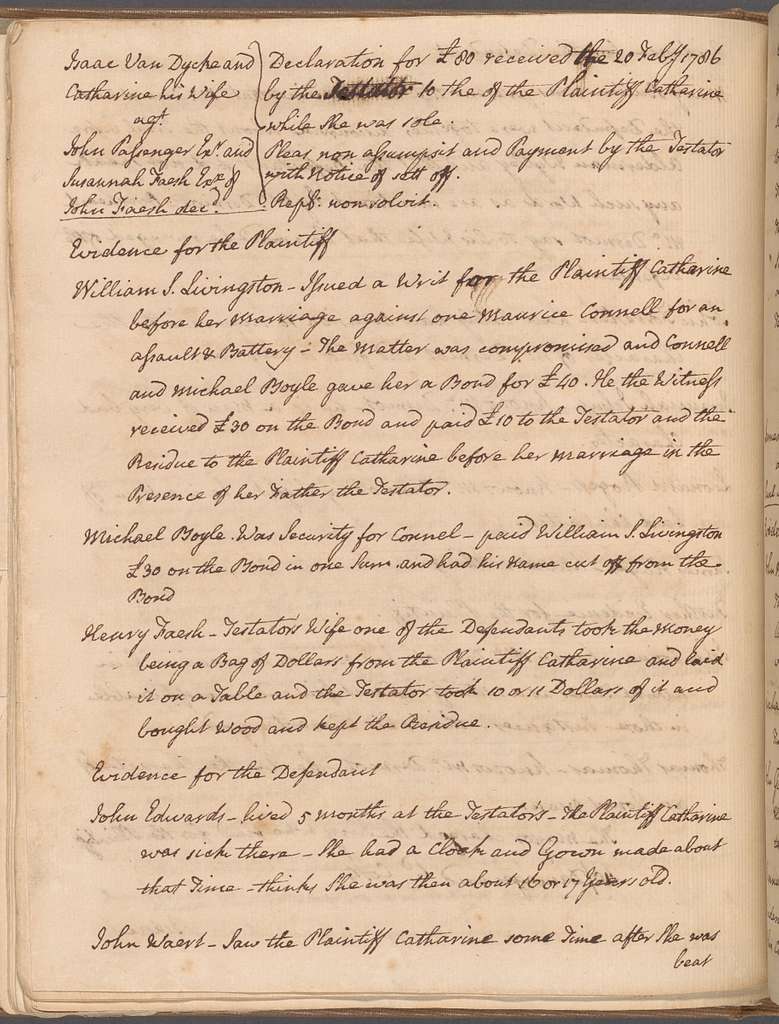 Isaac Van Dycke and
Catharine his Wife
agt.
John Passenger Exr. and
Susannah Faesh Exx. of
John Faesh decd.
Declaration for £80 received the 20 Feby. 1786
by the Testator to the of the Plaintiff Catharine
while She was sole.
Pleas non assumpsit and Payment by the Testator
with Notice of sett off.
Repn: non solvit.
Evidence for the Plaintiff
William S. Livingston - Issued a Writ for the Plaintiff Catharine
before her Marriage against one Maurice Connell for an
assault & Battery - The Matter was compromised and Connell
and Michael Boyle gave her a Bond for £40. He the Witness
received £30 on the Bond and paid £10 to the Testator and the
Residue to the Plaintiff Catharine before her Marriage in the
Presence of her Father the Testator.
Michael Boyle. Was Security for Connel - paid William S. Livingston
£30 on the Bond in one Sum and had his Name cut off from the
Bond
Henry Faesh - Testator's Wife one of the Defendants took the Money
being a Bag of Dollars from the Plaintiff Catharine and laid
it on a Table and the Testator took 10 or 11 Dollars of it and
bought Wood and kept the Residue.
Evidence for the Defendant
John Edwards - lived 5 months at the Testator's - The Plaintiff Catharine
was sick there - She had a Cloak and Gown made about
that Time - thinks She was then about 16 or 17 Years old.
John Waert - Saw the Plaintiff Catharine some Time after She was
beat